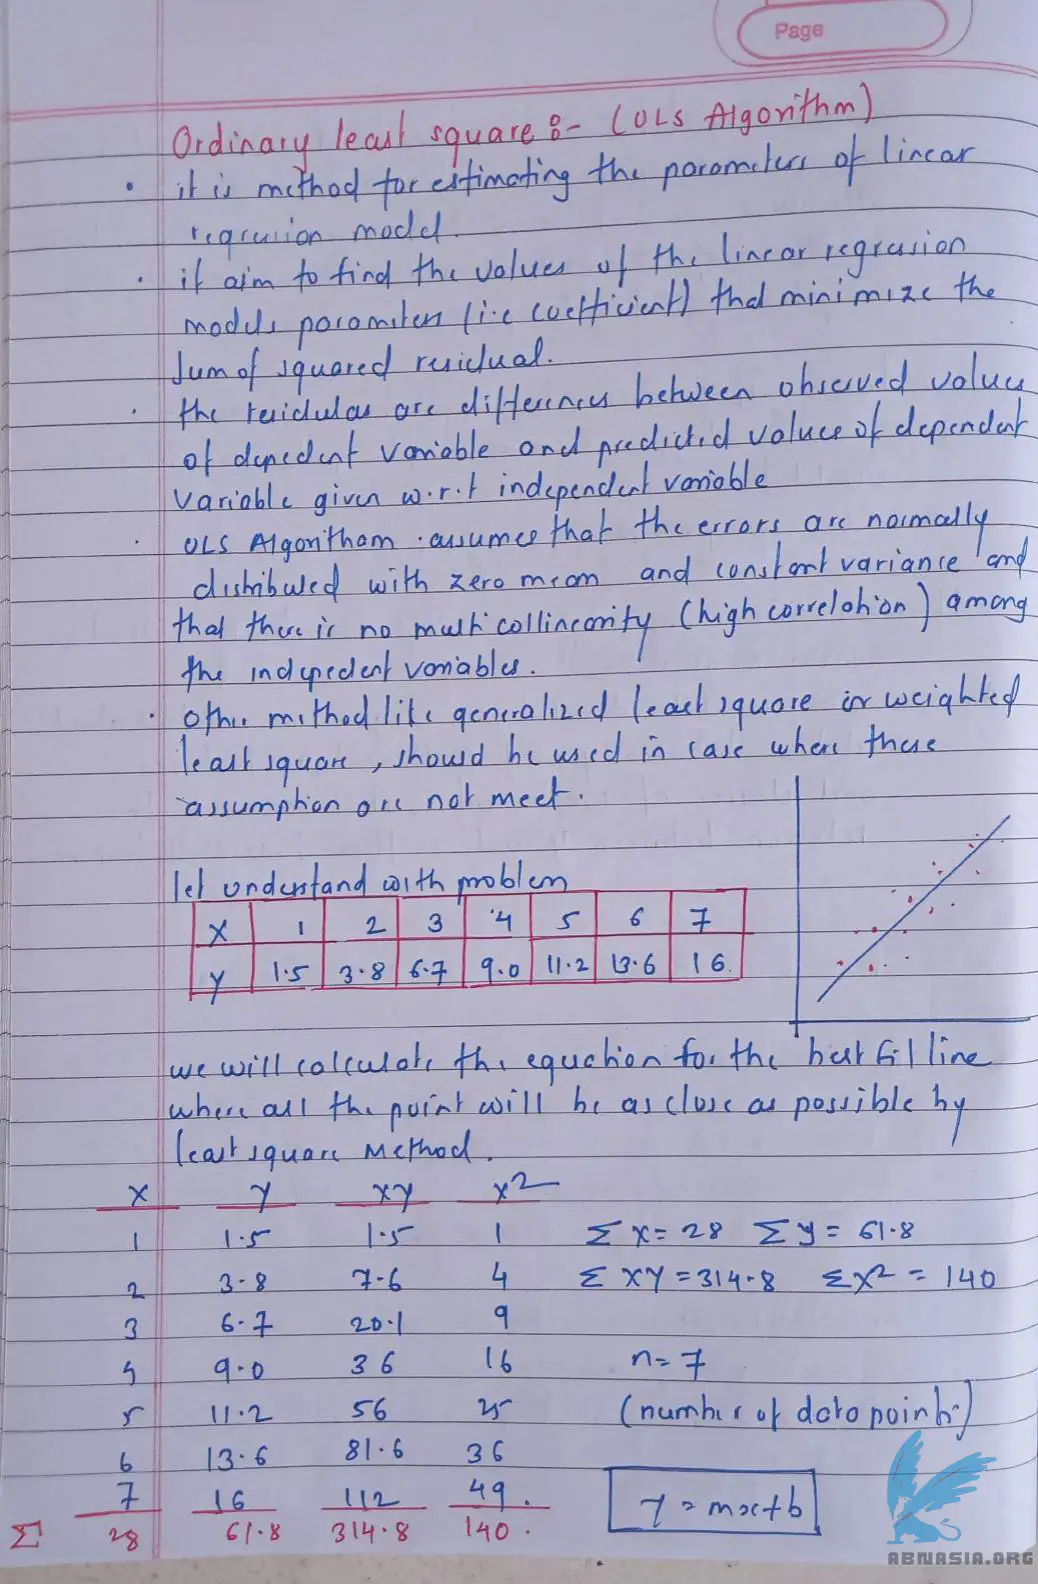 Page
Ordinary least square :- (OLS Algorithm)
• it is method for estimating the parameters of linear
regression model.
• it aim to find the values of the linear regression
models parameters (i.e coefficient) that minimize the
sum of squared residual.
• the residulas are differences between observed values
of depedent variable and predicted values of dependent
variable given w.r.t independent variable
• OLS Algoritham assumes that the errors are normally
distributed with zero mean and constant variance and
that there is no multicollinearity (high correlation) among
the indepedent variables.
• other method like generalized least square or weighted
least square, should be used in case where these
assumption are not meet.
let understand with problem
X 1 2 3 4 5 6 7
Y 1.5 3.8 6.7 9.0 11.2 13.6 16
we will calculate the equation for the best fit line
where all the point will be as close as possible by
least square Method.
x y xy x²
1 1.5 1.5 1 Σ x = 28 Σ y = 61.8
2 3.8 7.6 4 Σ xy = 314.8 Σx² = 140
3 6.7 20.1 9
4 9.0 36 16 n = 7
5 11.2 56 25 (number of data points)
6 13.6 81.6 36
7 16 112 49. Y = mx + b
Σ 28 61.8 314.8 140.
ABNASIA.ORG